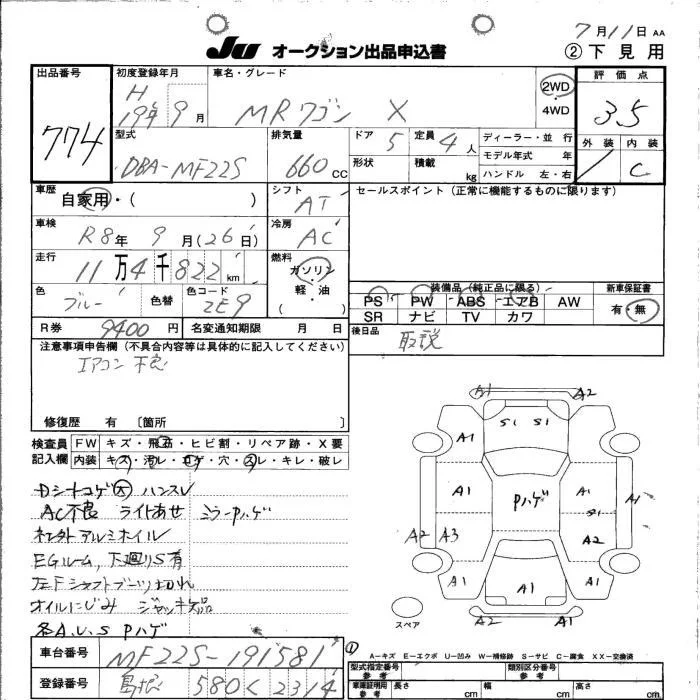 7月11日 AA
JU オークション出品申込書 ② 下見用
出品番号 774
初度登録年月 H 19年 9月
車名・グレード MRワゴン X
2WD
4WD
評価点 3.5
外装 内装 C
型式 DBA-MF22S
排気量 660 CC
ドア 5 定員 4人
形状 積載 kg
ディーラー・並行
モデル年式 年
ハンドル 左・右
車歴 自家用・( )
シフト AT
セールスポイント (正常に機能するものに限ります)
車検 R8年 9月(26日)
冷房 AC
走行 11万4千822 km
燃料 ガソリン
軽・油
( )
色 ブルー 色替 色コード ZE9
装備品 (純正品に限る) 新車保証書
PS PW ABS エアB AW 有・無
SR ナビ TV カワ
R券 9400円 名変通知期限 月 日
後日品 取説
注意事項申告欄 (不具合内容等は具体的に記入してください)
エアコン不良
修復歴 有 〔箇所 〕
検査員 FW キズ・飛石・ヒビ割・リペア跡・X要
記入欄 内装 キズ・汚レ・コゲ・穴・スレ・キレ・破レ
Dシートコゲ大 ハンスレ
AC不良 ライトあせ ミラーPハゲ
社外アルミホイル
EGルーム、下廻りS有
左Fシャフトブーツ切れ
オイルにじみ ジャッキ欠品
各A.U.S Pハゲ
A1 A2
A1 S1 S1
A1 Pハゲ A1 S1 A1
A2 A3 A2
A1 A1 A1
A2 A1
スペア
A-キズ E-エクボ U-凹み W-補修跡 S-サビ C-腐食 XX-交換済
車台番号 MF22S-191581
登録番号 580 く 2314
型式指定番号 参考 類別区分番号 参考
車庫証明用 参考 長さ cm 幅 cm 高さ cm